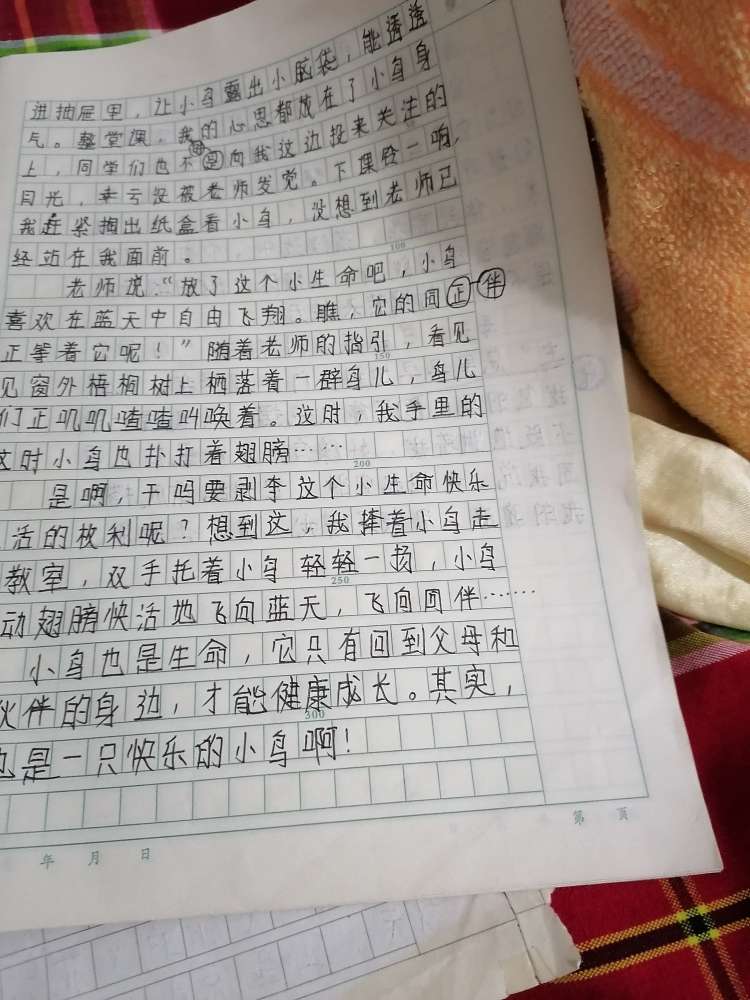 进抽屉里，让小鸟露出小脑袋，能透透
气。整堂课，我的心思都放在了小鸟身
上，同学们也不时向我这边投来关注的
目光，幸亏没被老师发觉。下课铃一响，
我赶紧掏出纸盒看小鸟，没想到老师已
经站在我面前。
100
老师说：“放了这个小生命吧，小鸟
喜欢在蓝天中自由飞翔。瞧，它的同伴
正等着它呢！”随着老师的指引，看见
150
见窗外梧桐树上栖落着一群鸟儿，鸟儿
们正叽叽喳喳叫唤着。这时，我手里的
这时小鸟也扑打着翅膀……
200
是啊，干吗要剥李这个小生命快乐
活的权利呢？想到这，我捧着小鸟走
教室，双手托着小鸟轻轻一扬，小鸟
250
动翅膀快活地飞向蓝天，飞向同伴……
小鸟也是生命，它只有回到父母和
伙伴的身边，才能健康成长。其实，
300
也是一只快乐的小鸟啊！
年 月 日
第 页